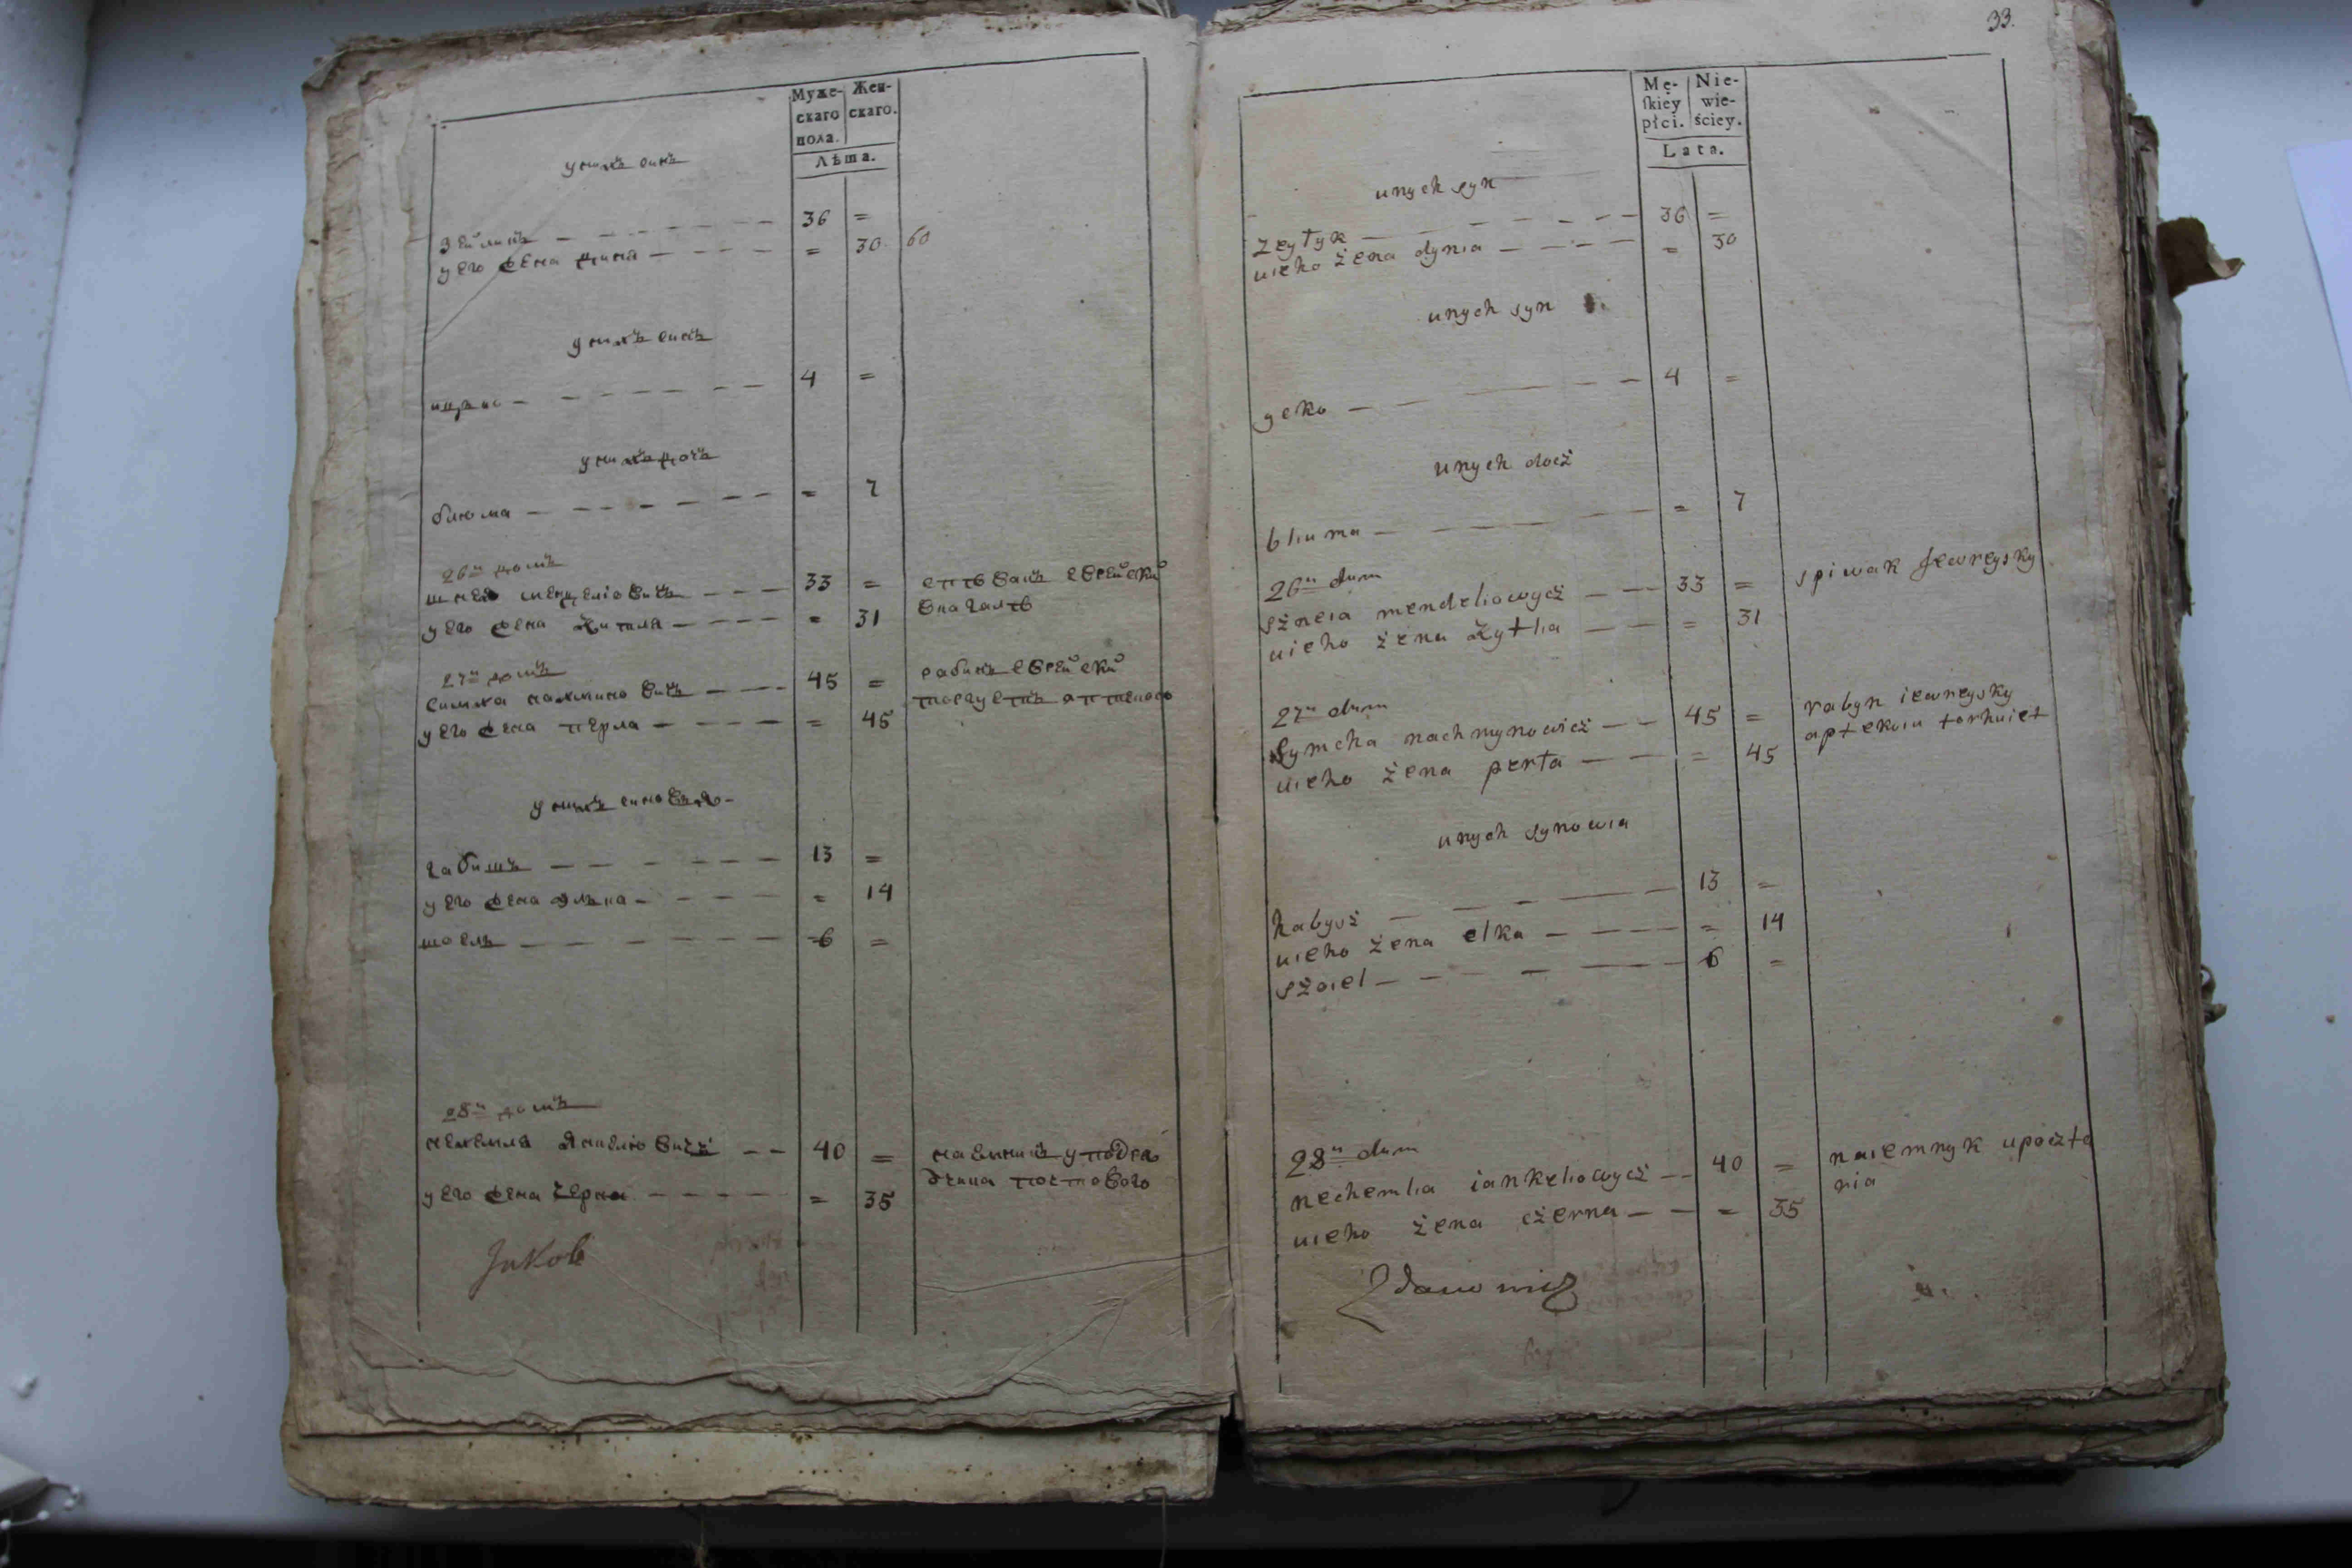 Муже-
скаго
пола.
Жен-
скаго.
Лѣта.
у нихъ синъ
Зейликъ 36 =
у его жена диня = 30 60
у нихъ синъ
ицко 4 =
у нихъ дочь
блюма = 7
26й домъ
шнея менделіовичъ 33 = спѣвакъ еврейскій
у его жена житля = 31
27й домъ
симха нахминовичъ 45 = рабинъ еврейскій
у его жена перла = 45
у нихъ синовья
габишъ 13 =
у его жена элька = 14
шоель 6 =
28й домъ
нехемля янкеліовичъ 40 =
у его жена черна = 35
Jakob
33.
Mę-
ſkiey
płci.
Nie-
wie-
ściey.
Lata.
unych syn
zeylyk 36 =
uieho żena dynia = 30
unych syn
ycko 4 =
unych docż
bliuma = 7
26й dum
sżneia mendeliowycż 33 = spiwak Jewreysky
uieho żena żytlia = 31
27й dum
symcha nachmynowicż 45 = rabyn iewreysky
uieho żena perła = 45 aptekoiu torhuiet
unych synowia
habysż 13 =
uieho żena elka = 14
sżoiel 6 =
28й dum
nechemlia iankeliowycż 40 = naiemnyk upocżta
ria
uieho żena cżerna = 35
Zdanowicz